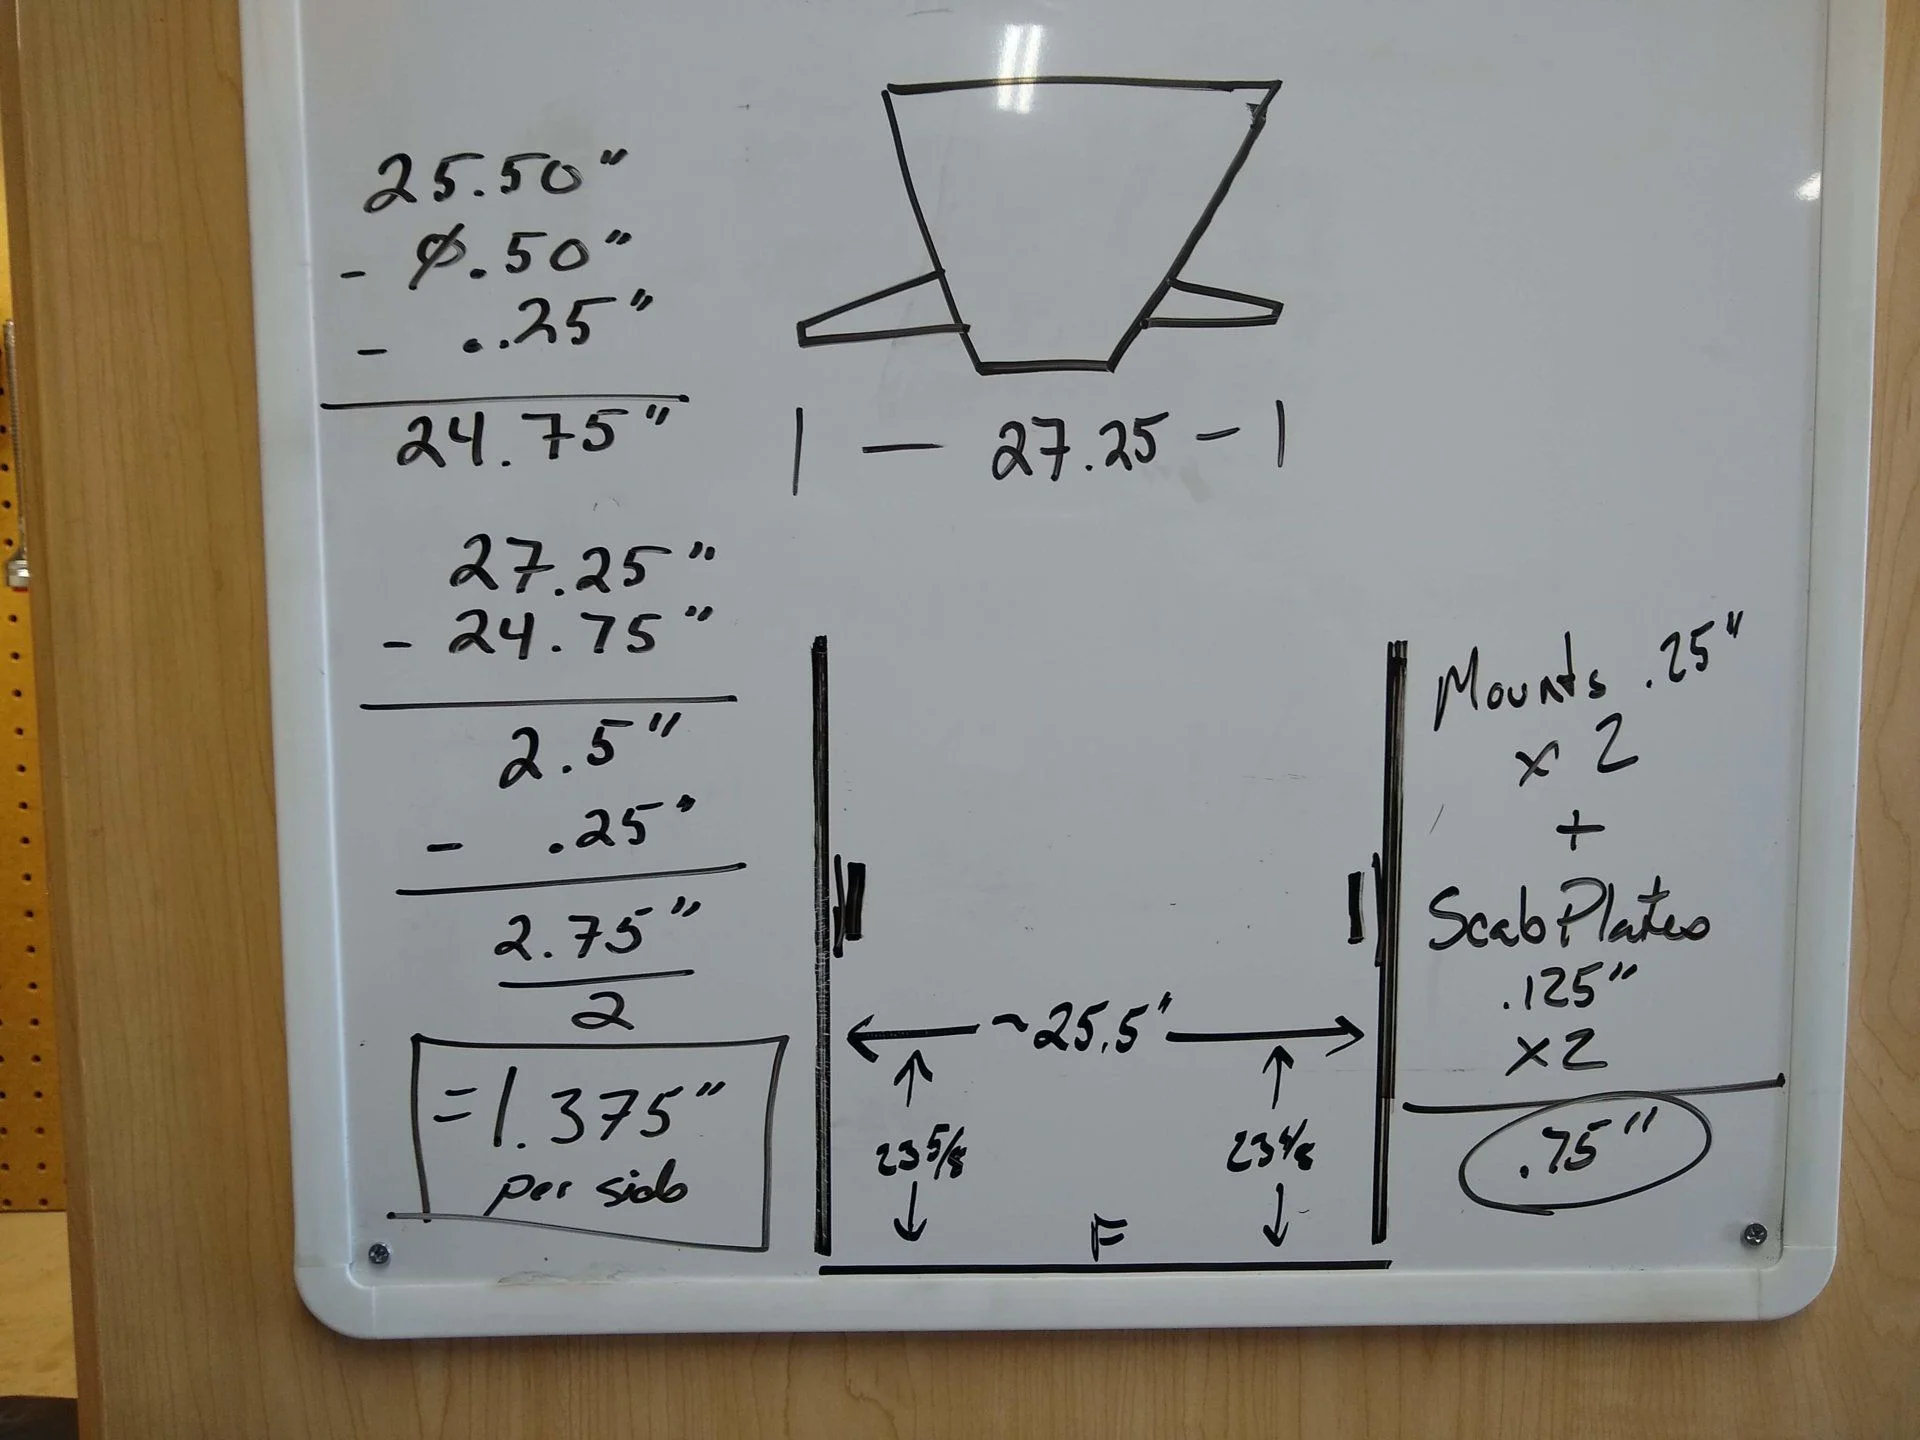 25.50"
- 0.50"
- ..25"
24.75"
27.25"
- 24.75"
2.5"
- .25"
2.75"
2
=1.375"
per side
| — 27.25 - |
~25.5"
23 5/8
F
Mounts .25"
x 2
+
Scab Plates
.125"
x2
.75"